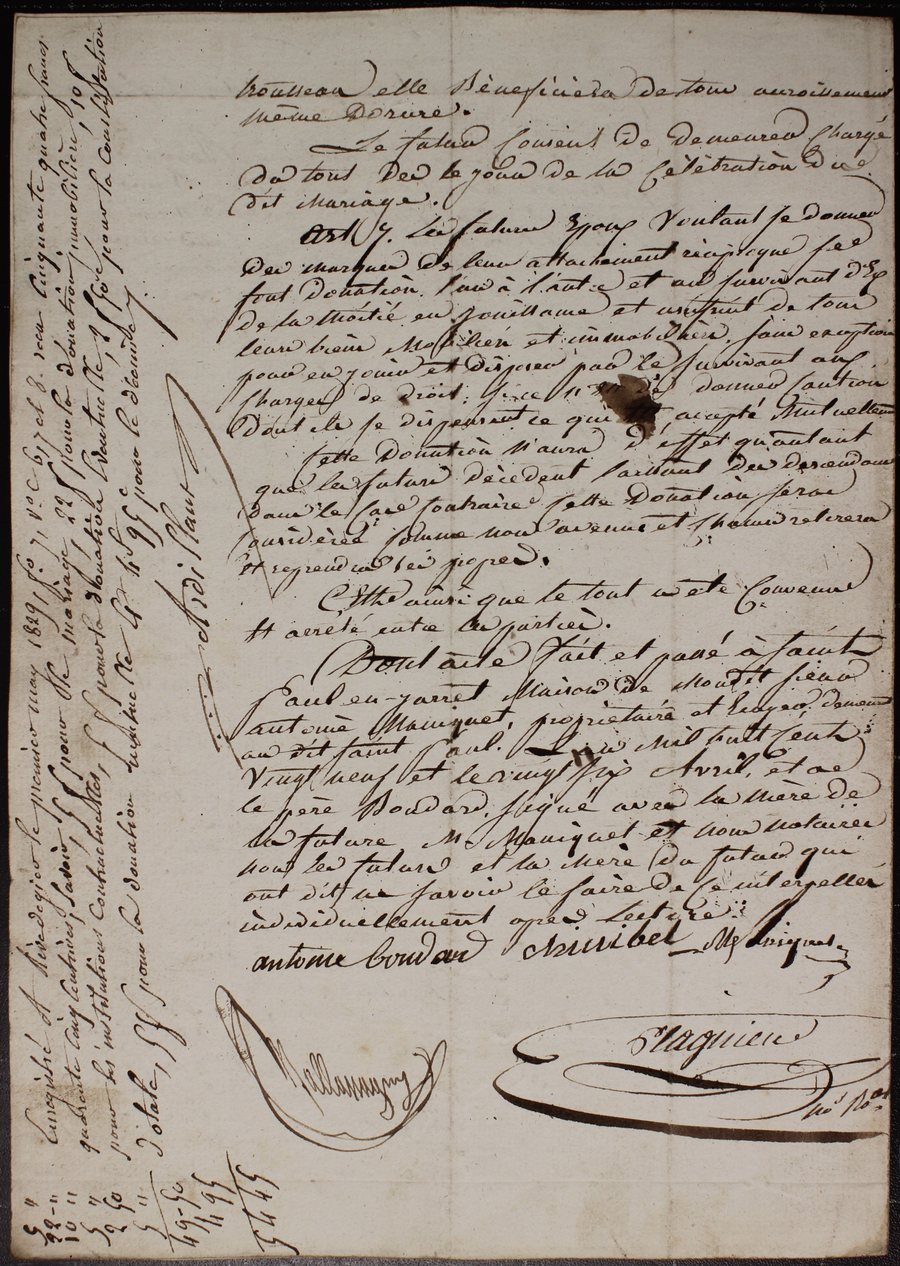 trousseau elle Bénéficiera de tout accroissement
même D'Eure.
Le futur Consent de demeurer Chargé
du tout des le jour de la Célébration du
dit Mariage.
Art 7. Les future Epoux Voulant se donner
des marques de leur attachement réciproque se
font Donation l'un à l'autre et au survivant d'Eux
de la Moitié en jouissance et usufruit de tous
leurs biens Mobiliers et immobiliers, sans exception
pour en jouir et disposer par le Survivant aux
Charges de droit, si ce n'est de donner caution
Dont ils se dispensent ce qui accepté Mutuellement
Cette Donation n'aura d'effet qu'autant
que les future décédent laissant des descendans
dans le Cas Contraire Cette Donation sera
Considérée Comme non avenue et Chacun retirera
et reprendra ses propres.
C'Est ainsi que le tout a été Convenu
et arrêté entre les parties.
Dont acte fait et passé à Saint
Paul en-jarret Maison de Mondit sieur
antoine Maniquet, propriétaire et demeurant
au dit saint Paul. L'an Mil huit Cent
Vingt neuf et le vingt six Avril, et a
le père Boudard signé avec la mère de
la future Mr Maniquet et nous notaires
non les future et la mère du futur qui
ont dit ne savoir le faire de ce interpellés
individuellement après Lecture.
antoine boudard Maniquet
Plagnieu
Enregistré à Rivedegier le premier may 1829, fo 71, Vo C 6, 7 et 8. reçu Cinquante quatre francs
quarante Cinq Centimes, savoir 5f pour le mariage, 22f pour la donation immobilière, 10f
pour les institutions Contractuelles, 5f pour la donation éventuelle, 2f 50c pour la Constitution
dotale, 5f pour la donation mutuelle et 4f 95c pour le décime.
5 "
22 - "
10 "
5 "
2 50
5 "
49 - 50
4 95
54 45